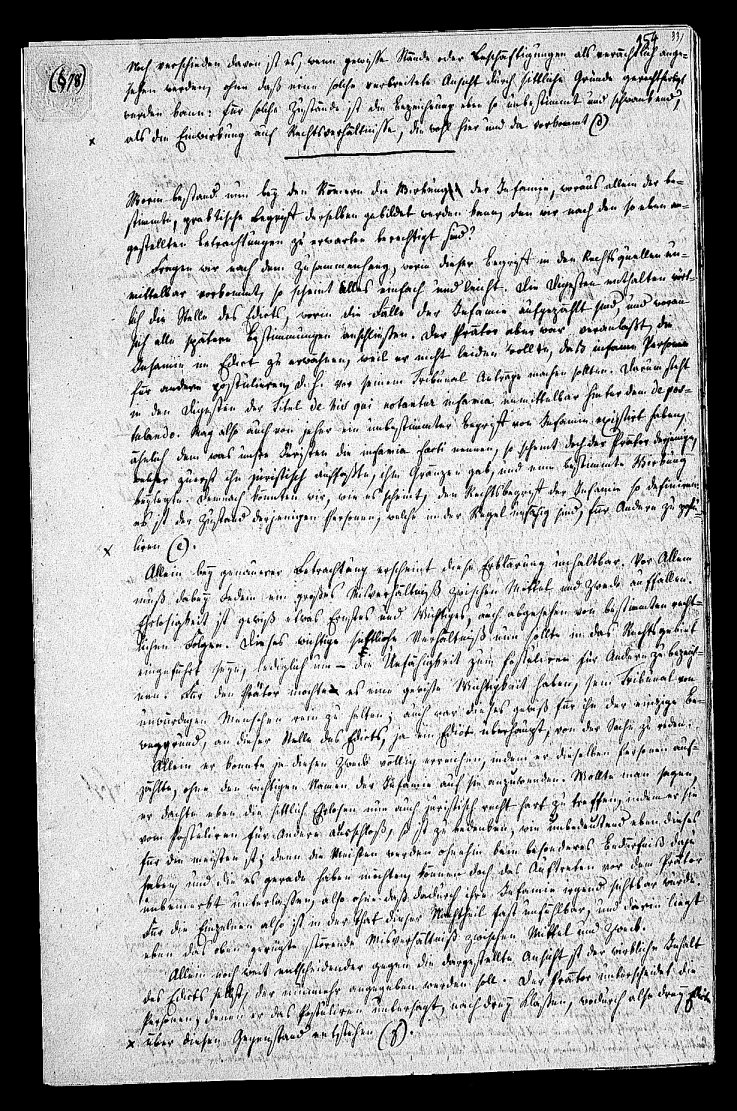 154 331
(§78)
Noch verschieden davon ist es, wenn gewisse Stände oder Beschäftigungen als verächtlich ange-
sehen werden, ohne daß eine solche verbreitete Ansicht durch sittliche Gründe gerechtfertigt
werden kann: für solche Zustände ist die Bezeichnung eben so unbestimmt und schwankend,
als die Einwirkung auf Rechtsverhältnisse, die wohl hier und da vorkommt (d)
Worin bestand nun bey den Römern die Wirkung der Infamie, woraus allein der be-
stimmte, praktische Begriff derselben gebildet werden kann, den wir nach den so eben an-
gestellten Betrachtungen zu erwarten berechtigt sind?
Fragen wir nach dem Zusammenhang, worin dieser Begriff in den Rechtsquellen un-
mittelbar vorkommt, so scheint Alles einfach und leicht. Die Digesten enthalten wört-
lich die Stelle des Edicts, worin die Fälle der Infamie aufgezählt sind, und woran
sich alle spätere Bestimmungen anschließen. Der Prätor aber war veranlaßt, die
Infamie im Edict zu erwähnen, weil er nicht leiden wollte, daß infame Personen
für andere postuliren, d. h. vor seinem Tribunal Anträge machen sollten. Darum steht
in den Digesten der Titel de his qui notantur infamia unmittelbar hinter dem de pos-
tulando. Mag also auch von jeher ein unbestimmter Begriff von Infamie existirt haben,
ähnlich dem was unsre Juristen die infamia facti nennen, so scheint doch der Prätor derjenige,
welcher zuerst ihn juristisch auffaßte, ihm Gränzen gab, und eine bestimmte Wirkung
beylegte. Demnach könnten wir, wie es scheint, den Rechtsbegriff der Infamie so definiren:
es ist der Zustand derjenigen Personen, welche in der Regel unfähig sind, für Andere zu postu-
liren (e).
Allein bey genauerer Betrachtung erscheint diese Erklärung unhaltbar. Vor Allem
muß dabey Jedem ein großes Misverhältniß zwischen Mittel und Zweck auffallen.
Ehrlosigkeit ist gewiß etwas Ernstes und Wichtiges, auch abgesehen von bestimmten recht-
lichen Folgen. Dieses wichtige sittliche Verhältniß nun sollte in das Rechtsgebiet
eingeführt seyn, lediglich um – die Unfähigkeit zum Postuliren für Andere zu bezeich-
nen. Für den Prätor mochte es eine gewisse Wichtigkeit haben, sein Tribunal von
unwürdigen Menschen rein zu halten; auch war dieses gewiß für ihn der einzige Be-
weggrund, an dieser Stelle des Edicts, ja im Edict überhaupt, von der Sache zu reden:
Allein er konnte ja diesen Zweck völlig erreichen, indem er dieselben Personen auf-
zählte, ohne den wichtigen Namen der Infamie auf sie anzuwenden. Wollte man sagen,
er dachte eben die sittlich Ehrlosen nun auch juristisch recht hart zu treffen, indem er sie
vom Postuliren für Andere ausschloß, so ist zu bedenken, wie unbedeutend eben dieses
für die meisten ist; denn die Meisten werden ohnehin kein besonderes Bedürfniß dazu
haben, und die es gerade haben möchten, können doch das Auftreten vor dem Prätor
unbemerkt unterlassen, also ohne daß dadurch ihre Infamie irgend sichtbar würde.
Für die Einzelnen also ist in der That dieser Nachtheil fast unfühlbar, und darin liegt
eben das oben gerügte störende Misverhältniß zwischen Mittel und Zweck.
Allein noch weit entscheidender gegen die dargestellte Ansicht ist der wirkliche Inhalt
des Edicts selbst, der nunmehr angegeben werden soll. Der Prätor unterscheidet die
Personen, denen er das Postuliren untersagt, nach drey Klassen, wodurch also drey Edicte
über diesen Gegenstand entstehen (f).